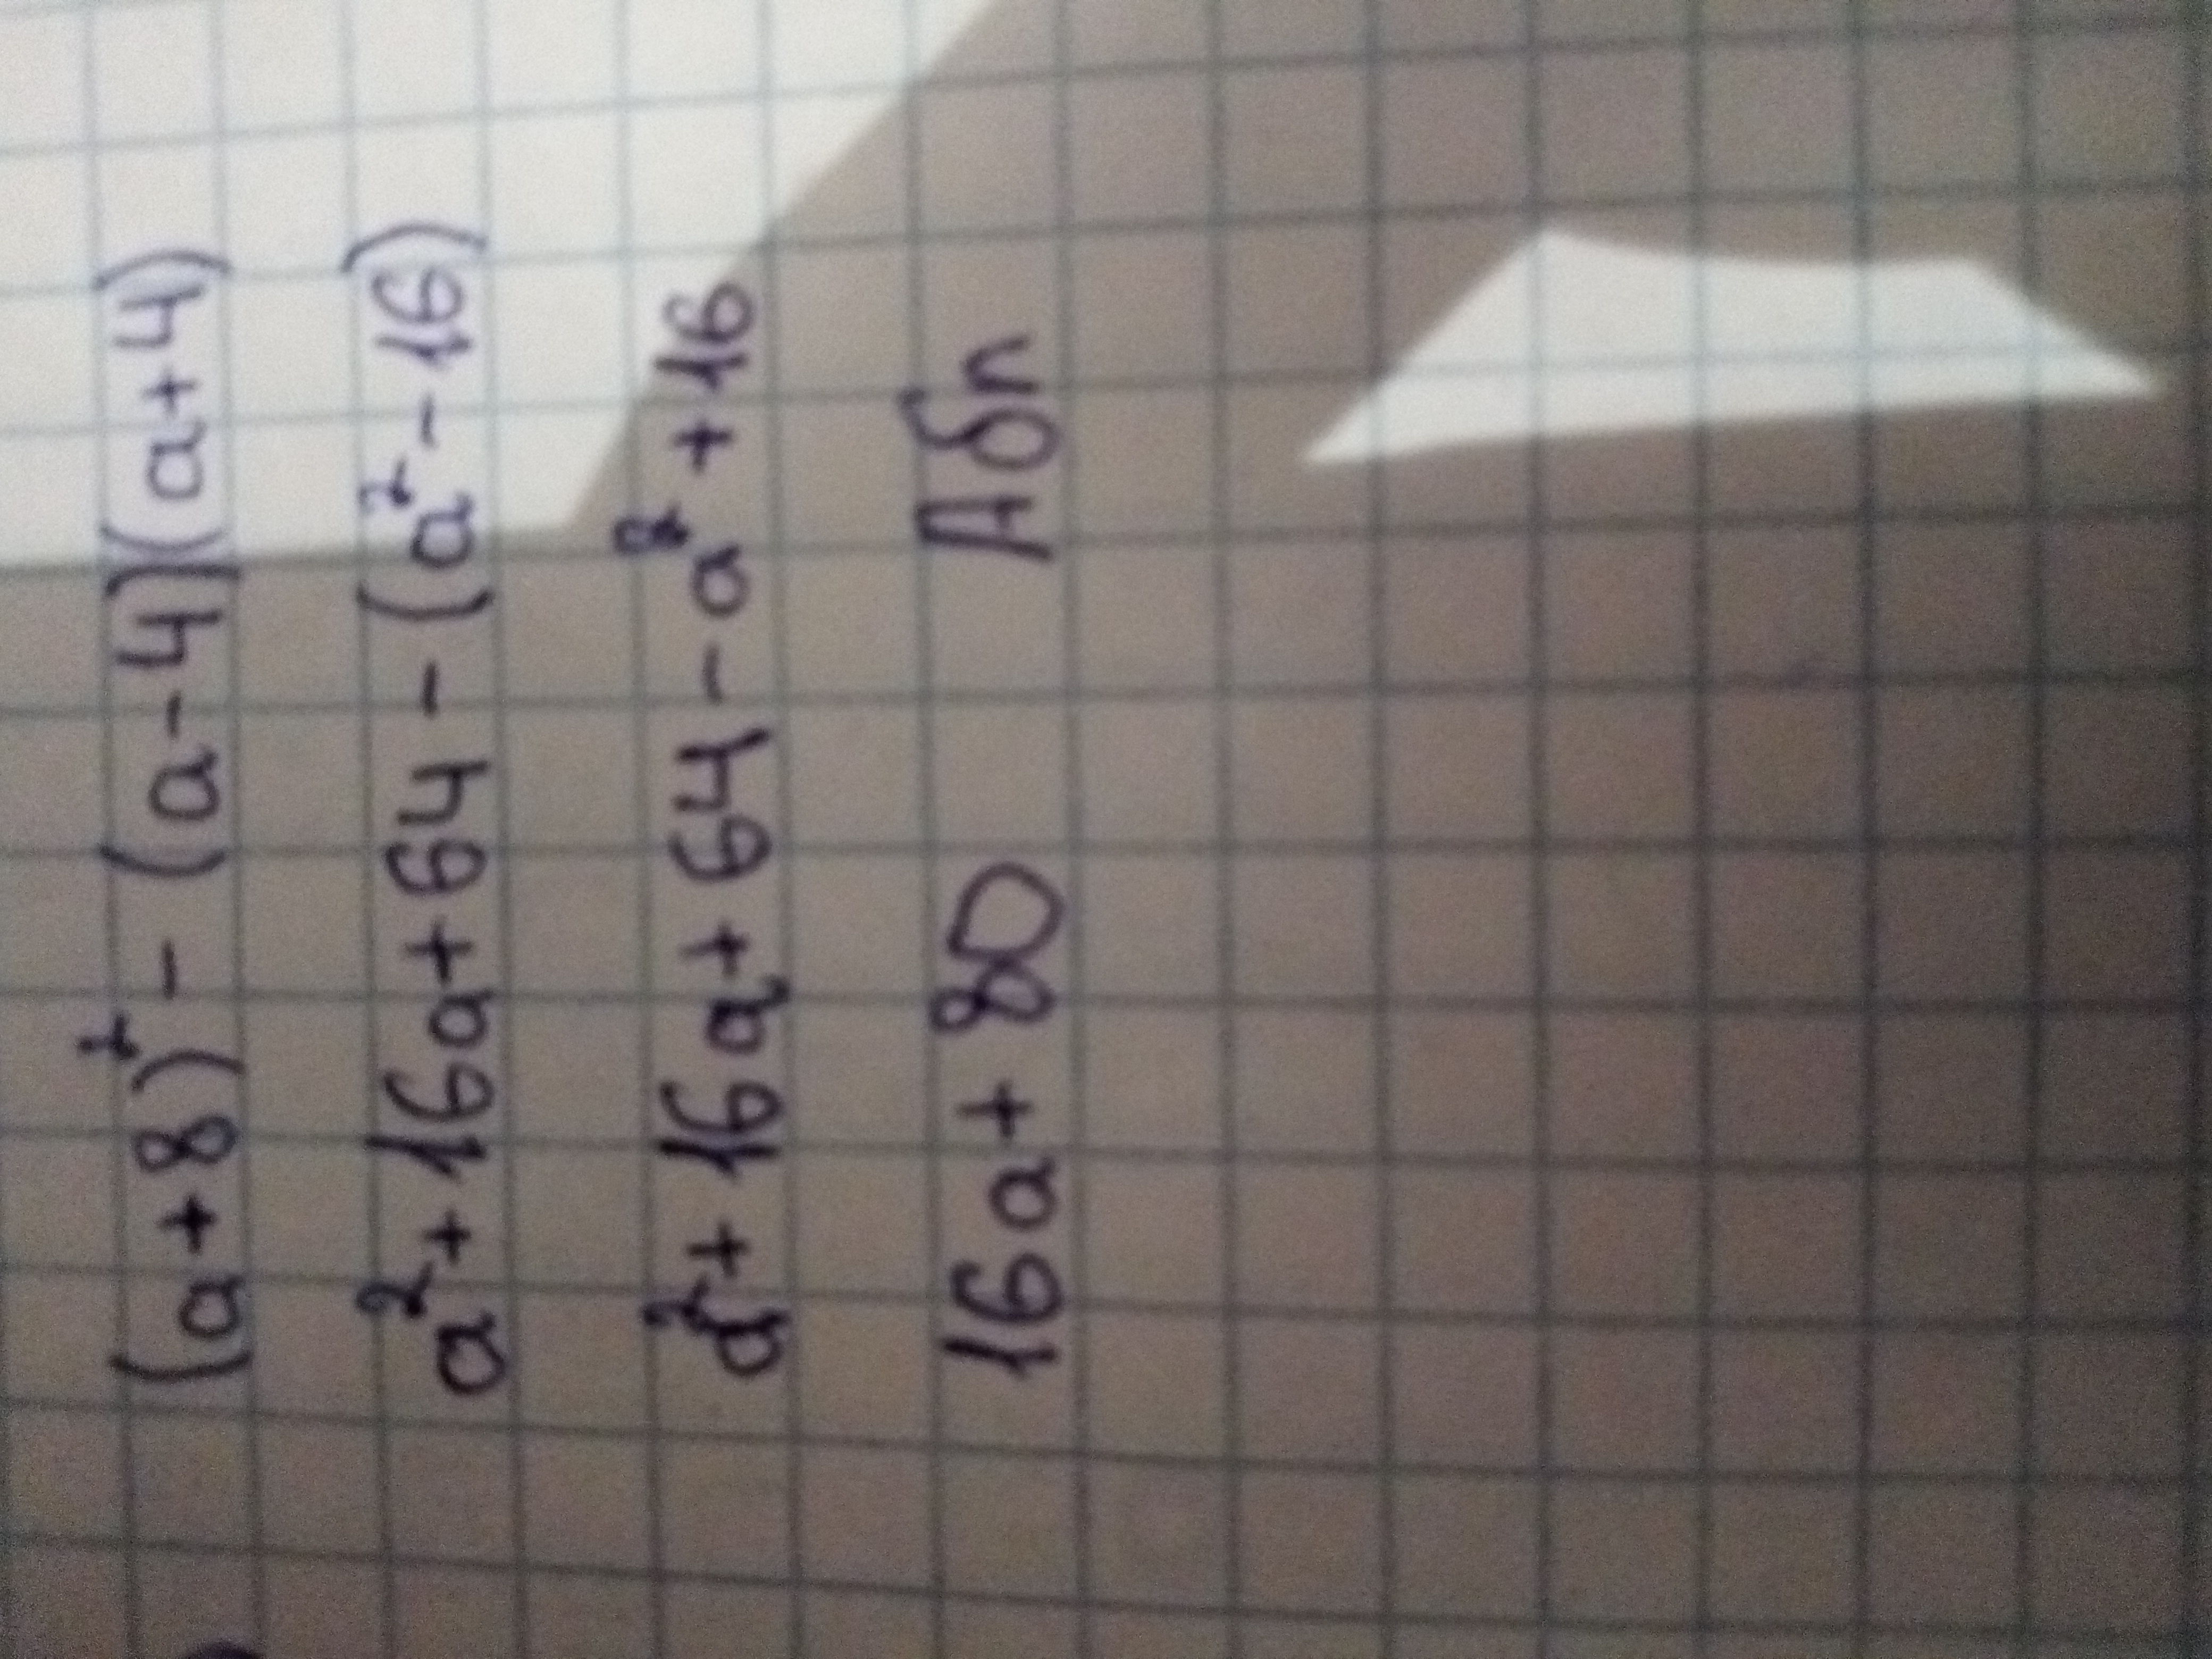 (a+8)² - (a-4)(a+4)
a²+16a+64 - (a²-16)
a²+16a+64-a²+16
16a+80